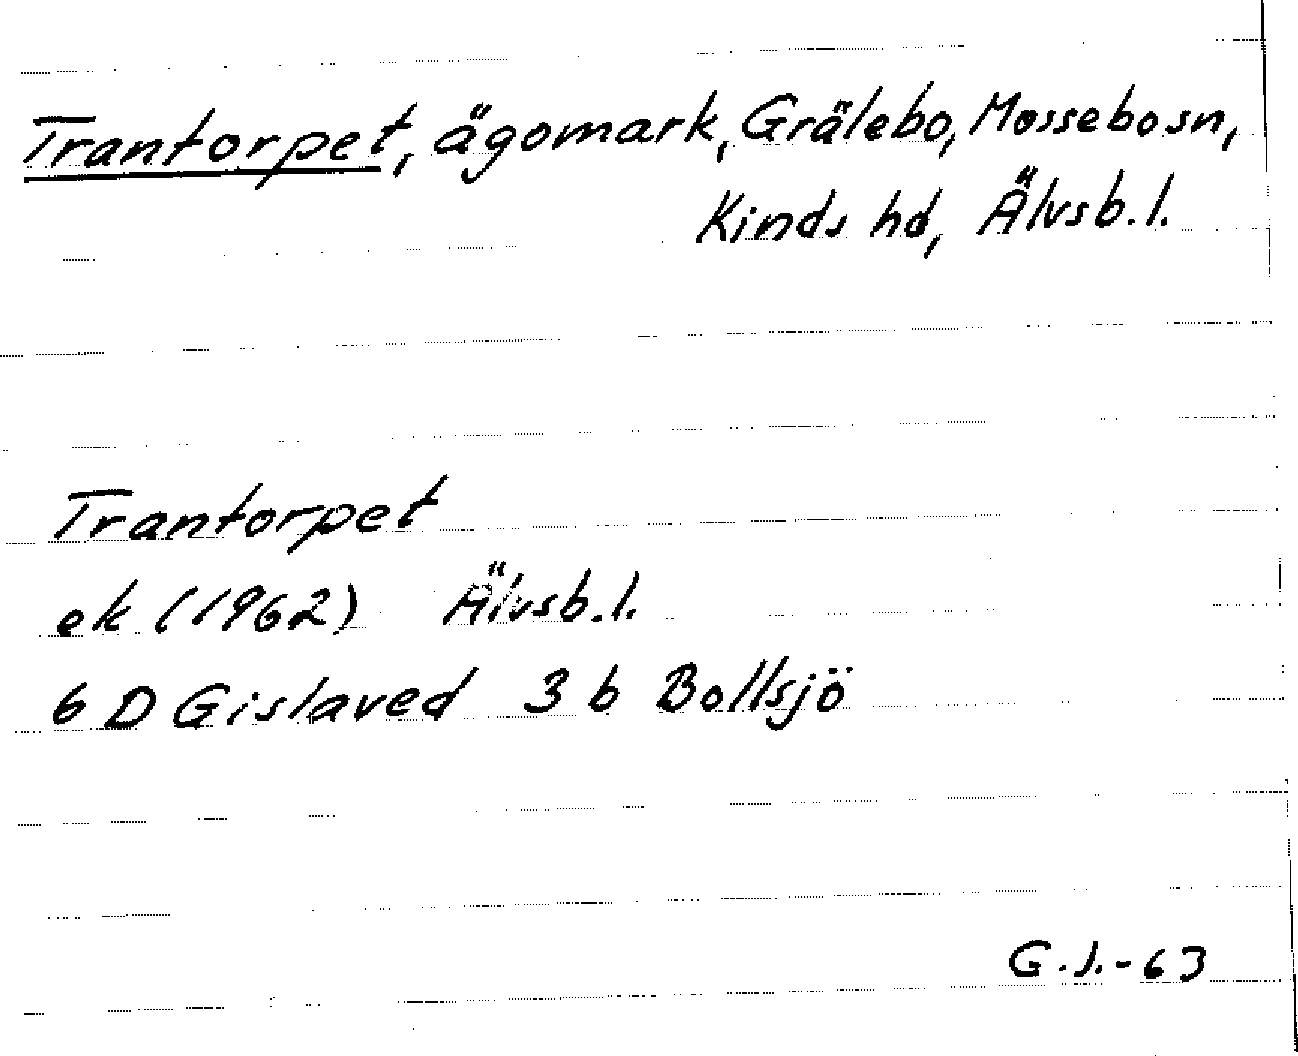 Trantorpet, ägomark, Grälebo, Mossebo sn,
Kinds hd, Älvsb. l.
Trantorpet
ek (1962) Älvsb. l.
6 D Gislaved 3 b Bollsjö
G.J.-63